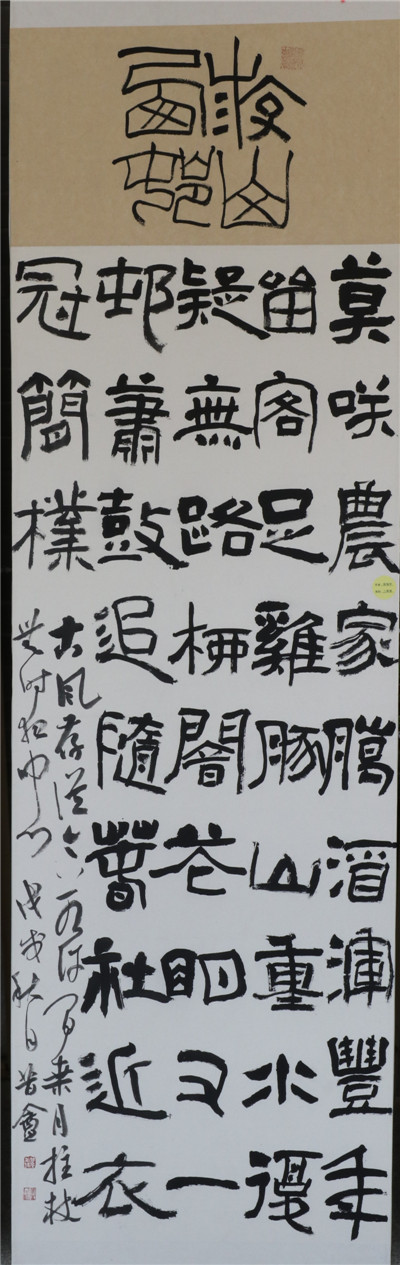 游山
西邨
莫咲農家臘酒渾豐年
留客足雞豚山重水復
疑無路柳闇花明又一
邨蕭鼓追隨春社近衣
冠簡樸
古風存從今若許閑乘月拄杖
無時夜叩門 戊戌秋日